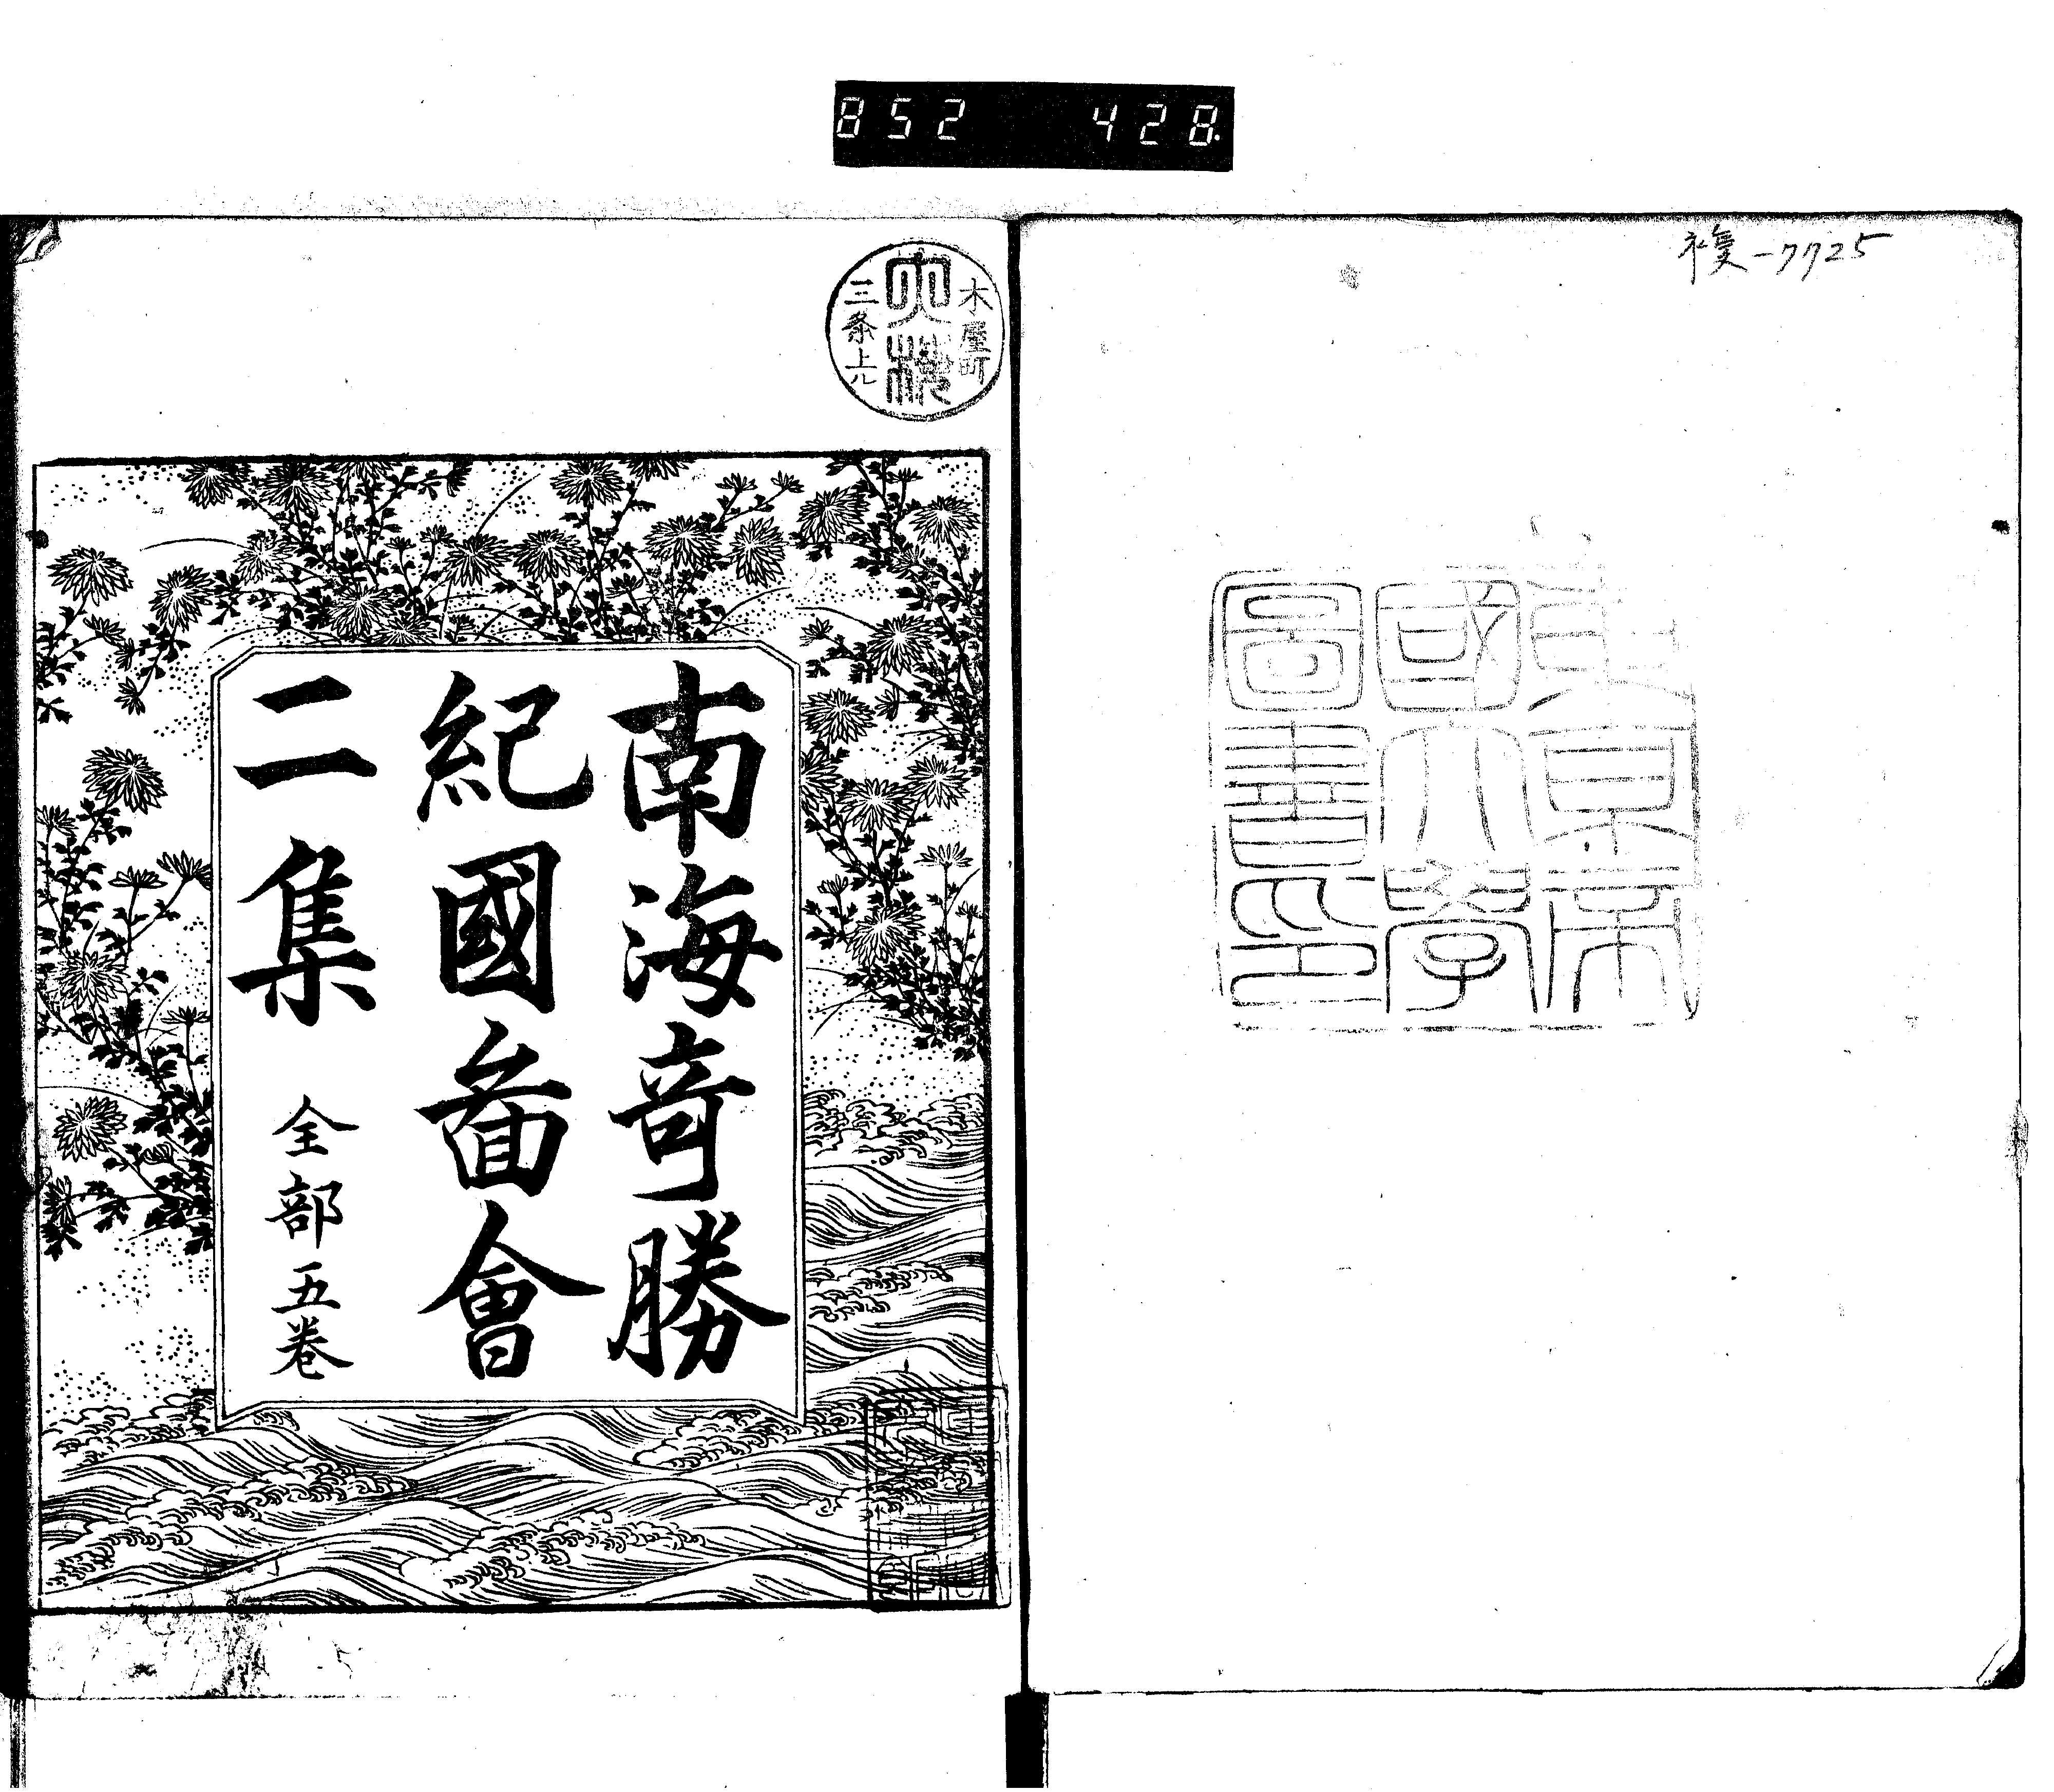 852 428
複-7725
東京帝
國大學
圖書印
木屋町
大惣
三条上ル
南海奇勝
紀國啚會
二集 全部五卷